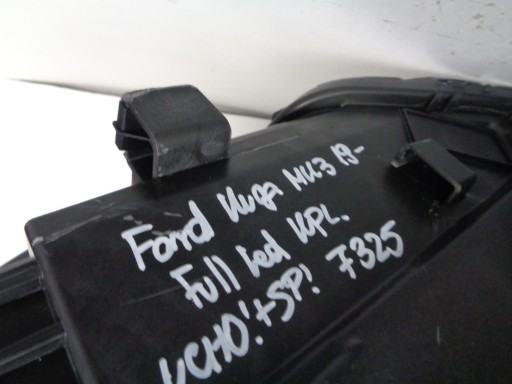 Ford Kuga MK3 19-
Full Led KPL.
UCHO!+SP! 7325